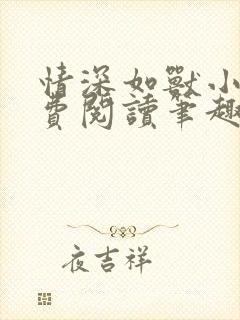 情深如獸小
費閱讀筆趣
夜吉祥